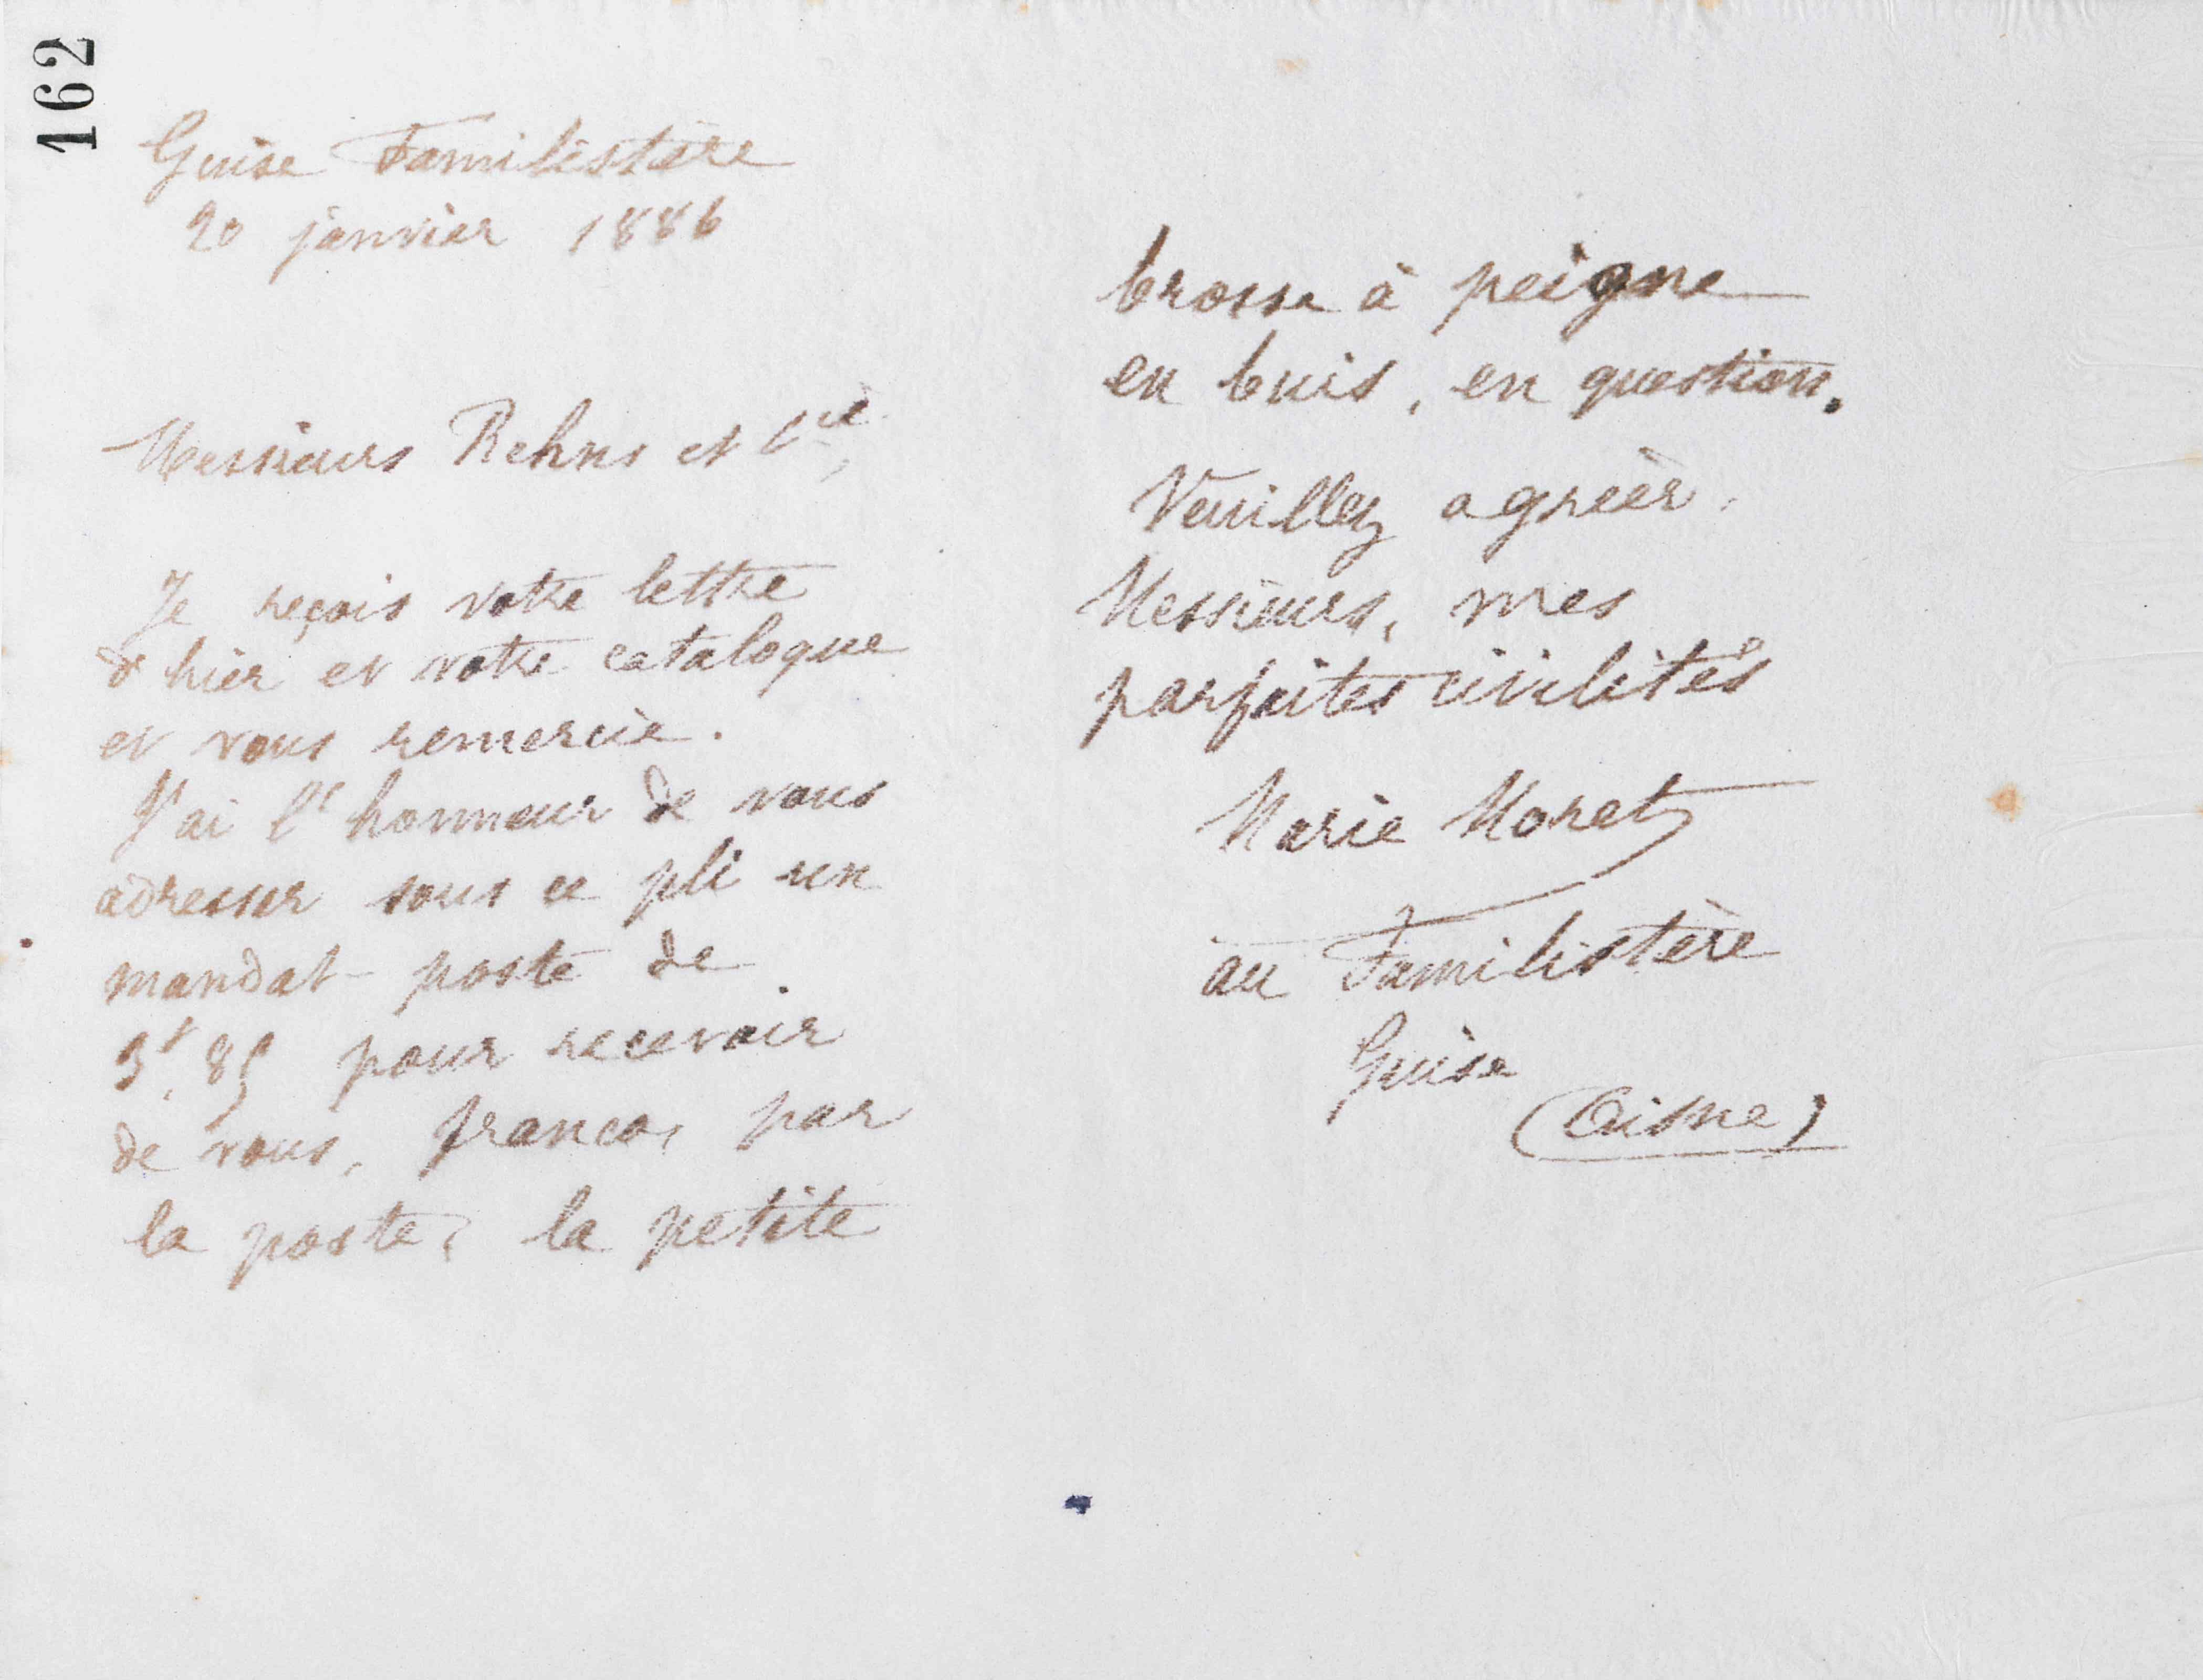 162
Guise Familistère
20 janvier 1886
Messieurs Rehns et Cie,
Je reçois votre lettre
d'hier et votre catalogue
et vous remercie.
J'ai l'honneur de vous
adresser sous ce pli un
mandat-poste de
3f,85 pour recevoir
de vous, franco, par
la poste, la petite
brosse à peigne
en buis, en question.
Veuillez agréer,
Messieurs, mes
parfaites civilités
Marie Moret
au Familistère
Guise
(Aisne)